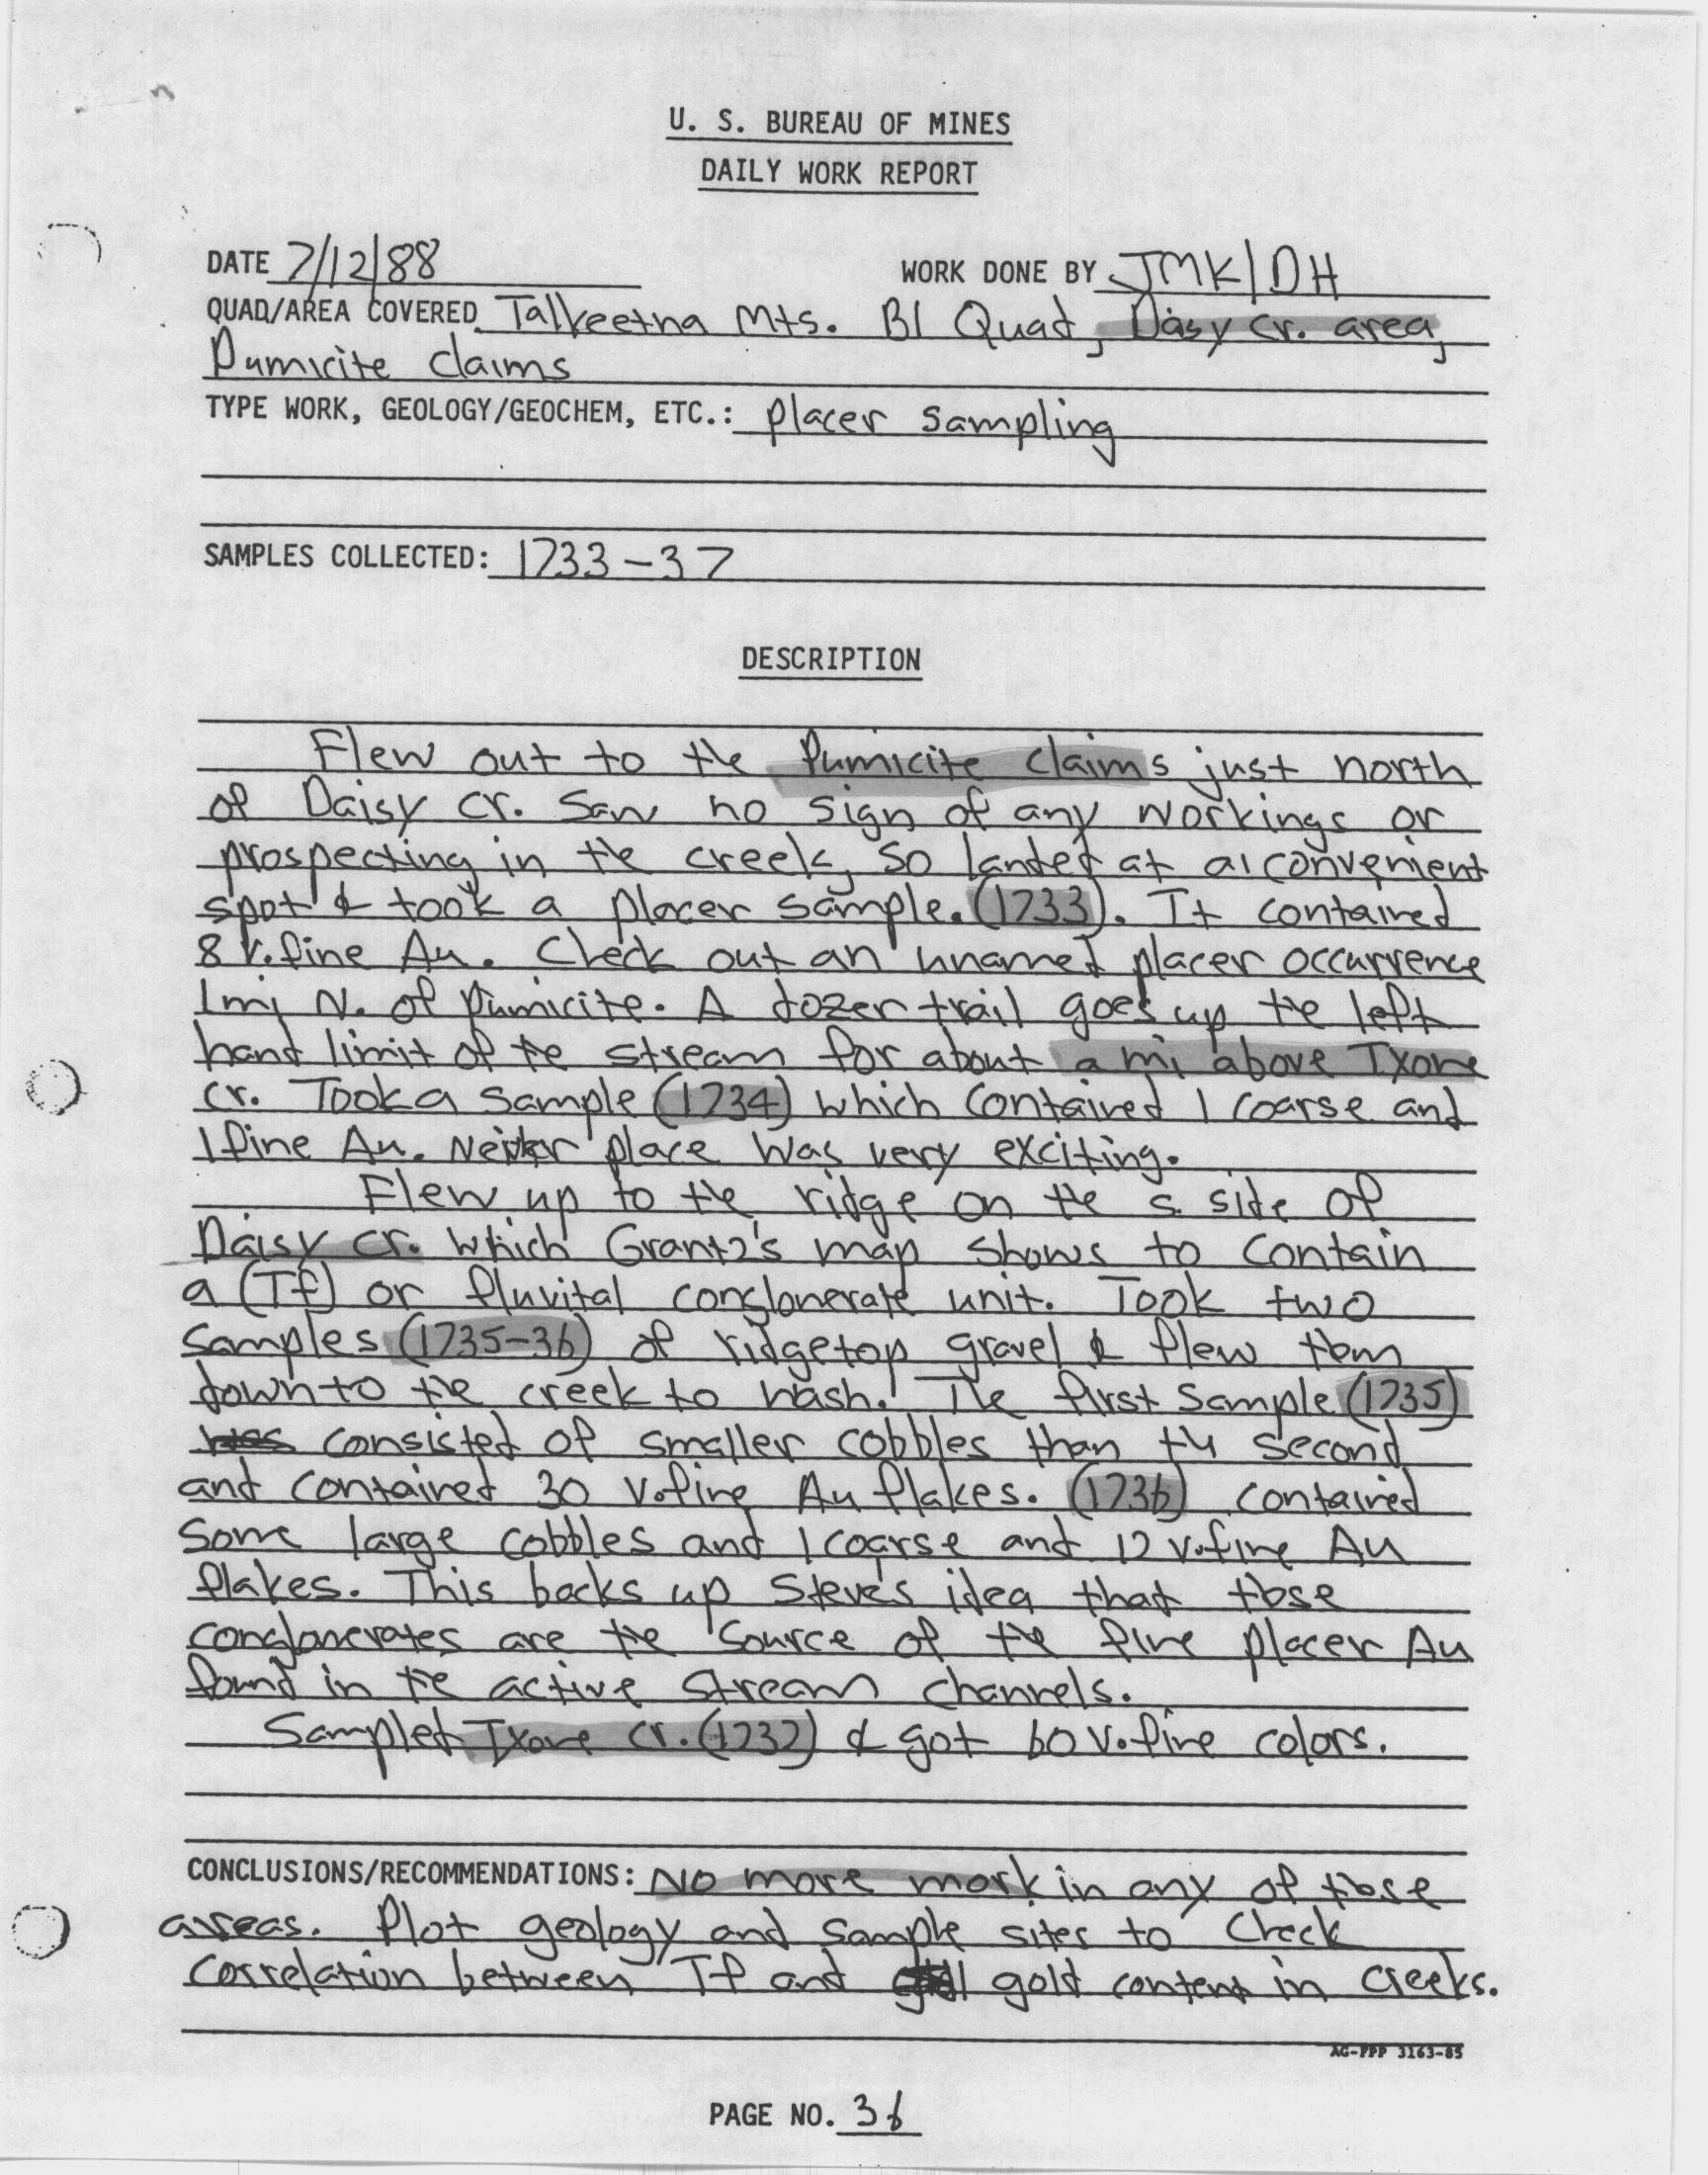 U. S. BUREAU OF MINES
DAILY WORK REPORT
DATE 7/12/88 WORK DONE BY JMK/DH
QUAD/AREA COVERED Talkeetna Mts. B1 Quad, Daisy Cr. area,
Pumicite claims
TYPE WORK, GEOLOGY/GEOCHEM, ETC.: placer sampling
SAMPLES COLLECTED: 1733-37
DESCRIPTION
Flew out to the Pumicite claims just north
of Daisy Cr. Saw no sign of any workings or
prospecting in the creek, so landed at a convenient
spot & took a placer sample. (1733). It contained
8 v. fine Au. Check out an unnamed placer occurrence
1 mi N. of Pumicite. A dozer trail goes up the left
hand limit of the stream for about a mi above Txone
Cr. Took a sample (1734) which contained 1 coarse and
1 fine Au. Neither place was very exciting.
Flew up to the ridge on the S. side of
Daisy Cr. which Grantz's map shows to contain
a (Tf) or fluvital conglonerate unit. Took two
samples (1735-36) of ridgetop gravel & flew them
down to the creek to wash. The first sample (1735)
was consisted of smaller cobbles than the second
and contained 30 v. fine Au flakes. (1736) contained
some large cobbles and 1 coarse and 12 v. fine Au
flakes. This backs up Steve's idea that those
conglonerates are the source of the fine placer Au
found in the active stream channels.
Sampled Txone Cr. (1737) & got 60 v. fine colors.
CONCLUSIONS/RECOMMENDATIONS: No more work in any of those
areas. Plot geology and sample sites to check
correlation between Tf and gold content in creeks.
AG-PPP 3163-85
PAGE NO. 36